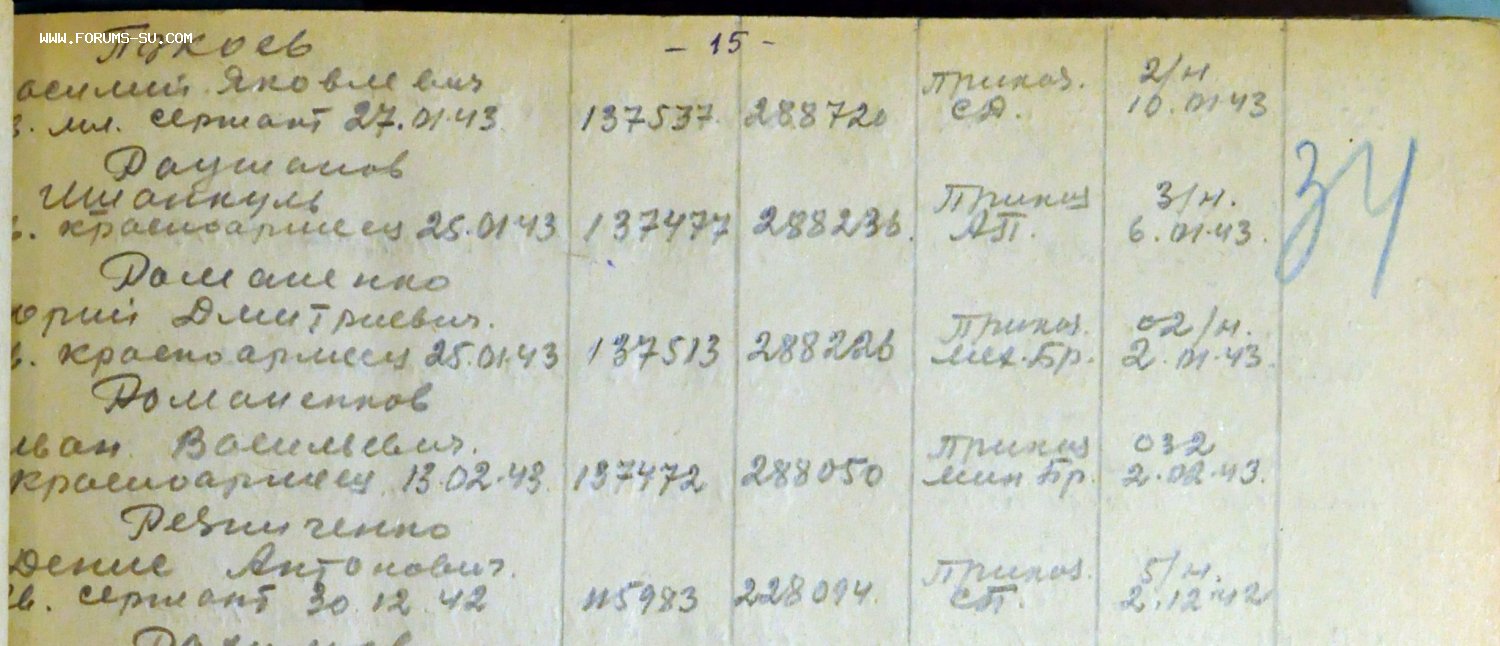 www.forums-su.com
Пукоев - 15 -
асилий Яковлевич Приказ. 2/н
в. мл. сержант 27.01.43 137537 288720 СД. 10.01.43
Раушанов
Ишанкуль Приказ 3/н.
в. красноармеец 25.01.43 137477 288236 АП. 6.01.43. 34
Романенко
юрий Дмитриевич. Приказ. 02/н.
в. красноармеец 25.01.43 137513 288226 мех. Бр. 2.01.43.
Романенков
иван Васильевич. Приказ 032
красноармеец 13.02.43. 137472 288050 мин Бр. 2.02.43.
Резниченко
Денис Антонович. Приказ. 5/н.
гв. сержант 30.12.42 115983 228094. СП. 2.12.42